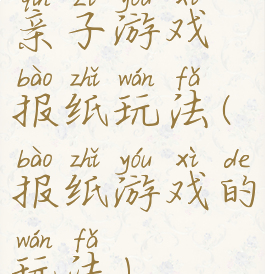 qīn zǐ yóu xì
亲子游戏
bào zhǐ wán fǎ
报纸玩法(
bào zhǐ yóu xì de
报纸游戏的
wán fǎ
玩法)